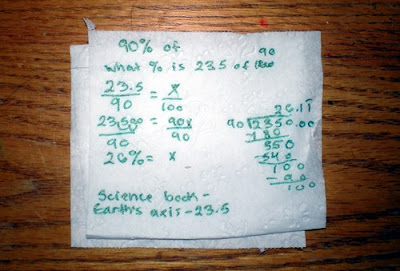 90% of
90
what % is 23.5 of
23.5 = x
90 100
23500 = 90x
90 90
26% = x
26.11
90 2350.00
180
550
540
100
- 90
100
Science book -
Earth's axis - 23.5